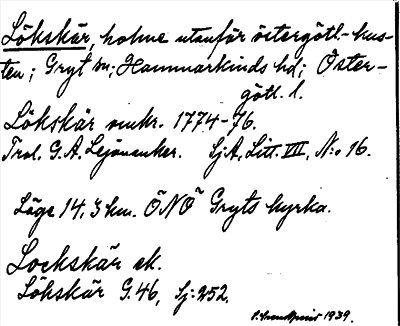 Lökskär, holme utanför östergötl.-kus-
ten; Gryt sn; Hammarkinds hd; Öster-
götl. l.
Lökskär omkr. 1774-76.
Trol. G. A. Lejonanker. SjA, Litt. VIII, N:o 16.
Läge 14,3 km. ÖNÖ Gryts kyrka.
Lockskär ek.
Lökskär G.46, Sj:252.
1939.